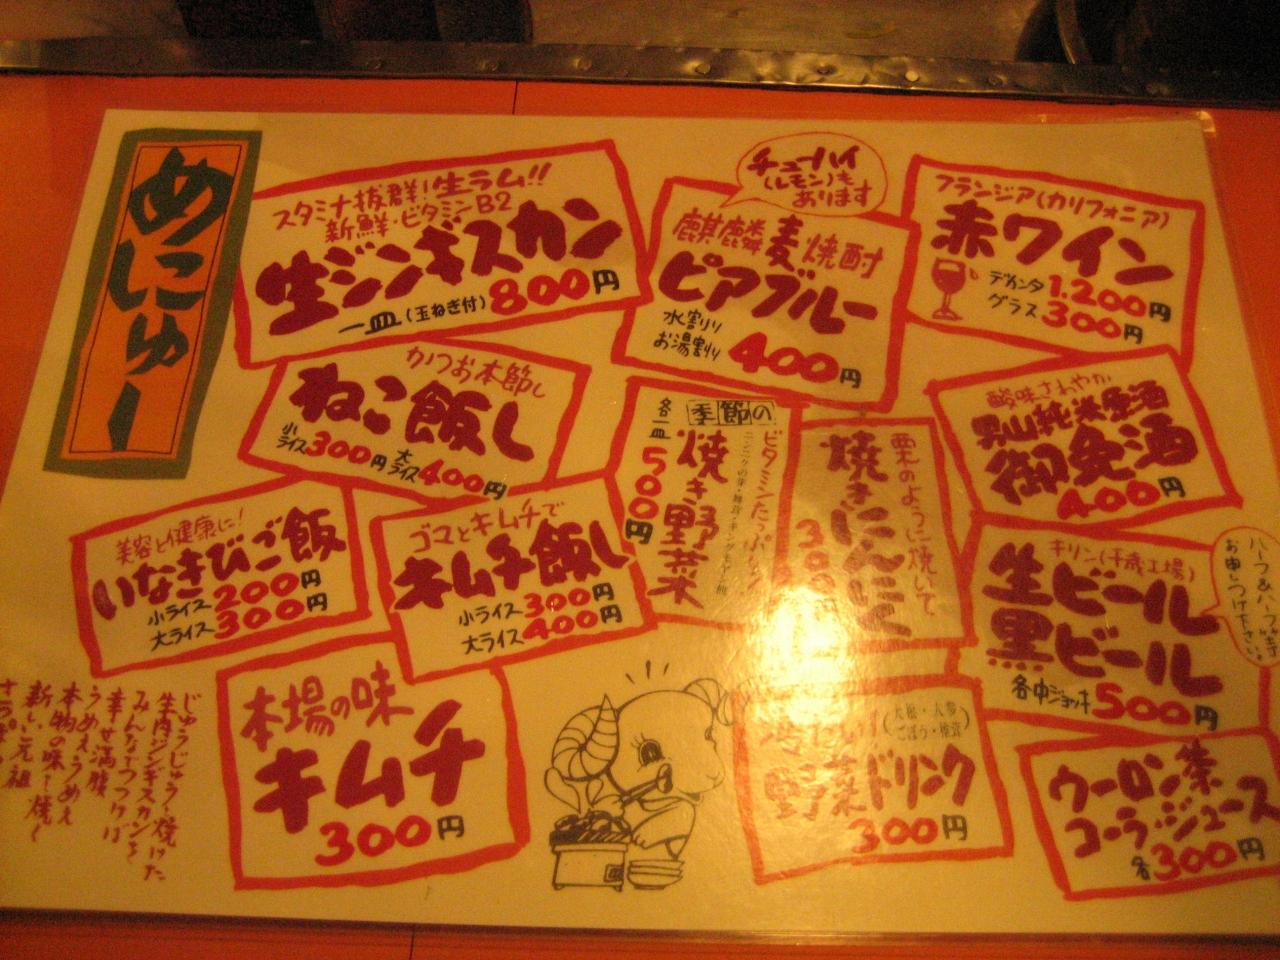 めにゅー
スタミナ抜群!生ラム!!
新鮮・ビタミンB2
生ジンギスカン
一皿(玉ねぎ付)800円
チューハイ
(レモン)も
あります
麒麟麦焼酎
ピアブルー
水割り
お湯割り
400円
フランジア(カリフォニア)
赤ワイン
デカンタ1.200円
グラス300円
かつお本節し
ねこ飯し
小ライス300円
大ライス400円
季節の
焼き野菜
各一皿500円
ビタミンたっぷり
栗のように焼いて
焼きにんにく
300円
酸味さわやか
男山純米原酒
御免酒
400円
美容と健康に!
いなきびご飯
小ライス200円
大ライス300円
ゴマとキムチで
キムチ飯し
小ライス300円
大ライス400円
キリン(千歳工場)
生ビール
黒ビール
各中ジョッキ500円
ハーフ&ハーフ
お申しつけ下さい
本場の味
キムチ
300円
大根・人参
ごぼう・椎茸
野菜ドリンク
300円
ウーロン茶
コーラ・ジュース
各300円
じゅうじゅう焼けた
生肉ジンギスカンを
みんなでつつけば
幸せ満腹
うめえうめえ
本物の味を焼く
新しい元祖